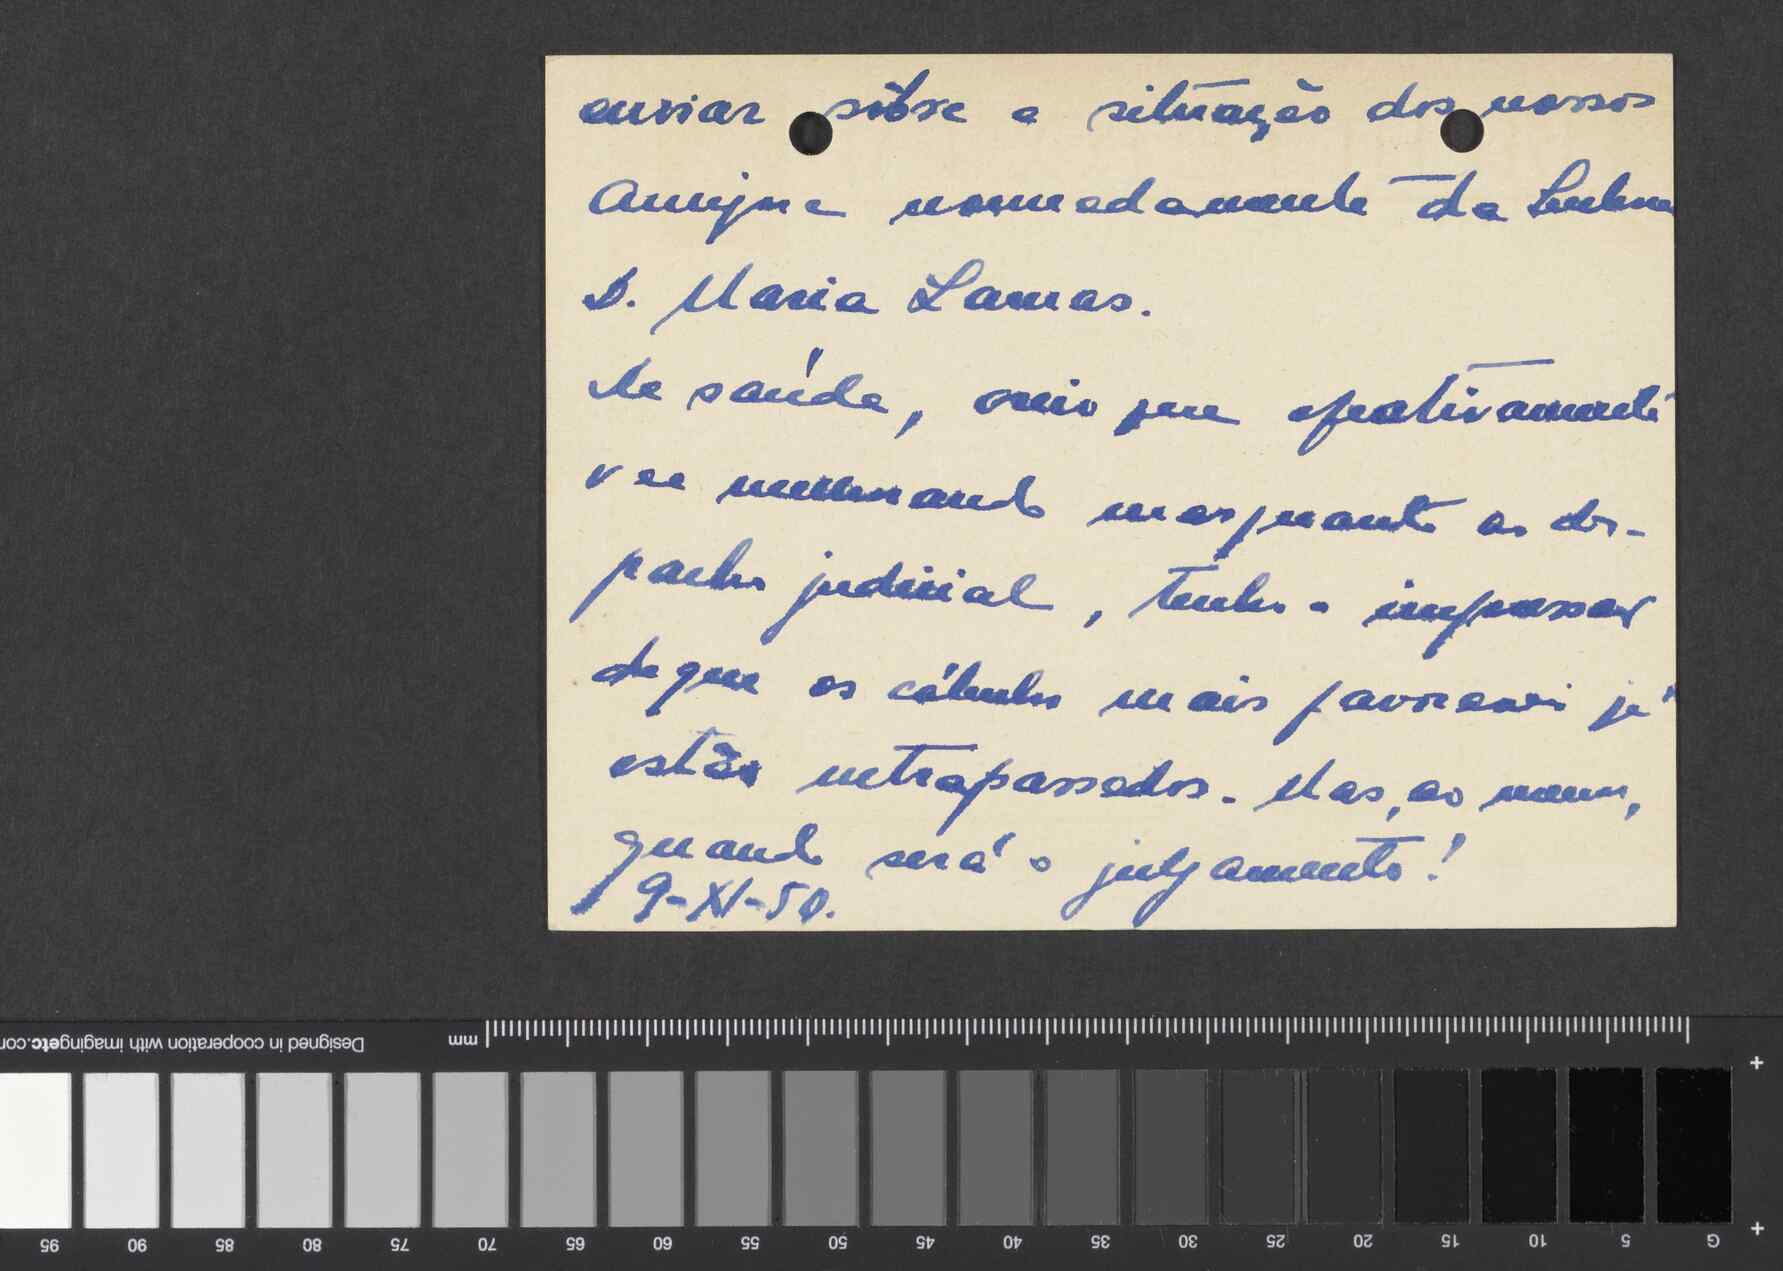 enviar sôbre a situação dos nossos
Amigos nomeadamente da Senhora
D. Maria Lamas.
De saúde, creio que efectivamente
vae melhorando mas quanto ao des-
pacho judicial, tenho a impressão
de que os cálculos mais favoraveis já
estão ultrapassados. Mas, ao menos,
quando será o julgamento!
9-XI-50.
Designed in cooperation with imagingetc.com
mm
95 90 85 80 75 70 65 60 55 50 45 40 35 30 25 20 15 10 5 G